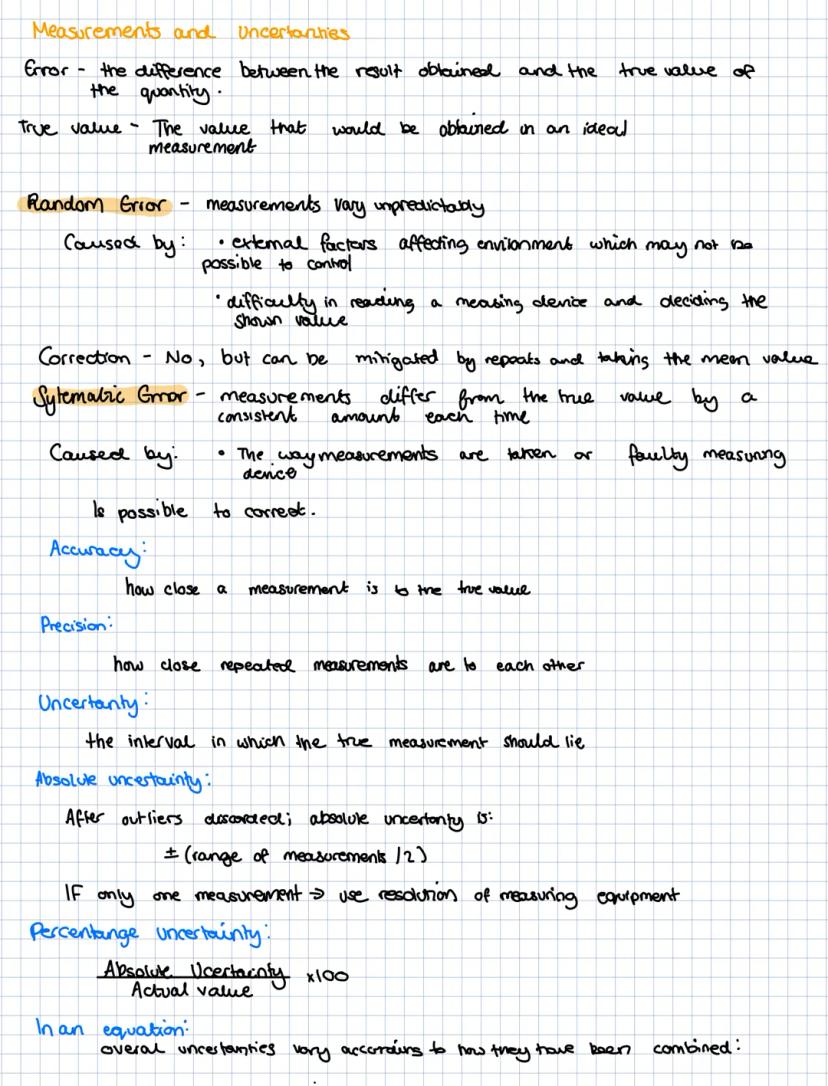 Measurements and Uncertanties
Error - the difference between the result obtained and the true value of
the quantity.
True value - The value that would be obtained in an ideal
measurement
Random Error - measurements vary unpredictably
Caused by: • external factors affecting environment which may not be
possible to control
• difficulty in reading a measing device and deciding the
shown value
Correction - No, but can be mitigated by repeats and taking the mean value
Sytematic Error - measurements differ from the true value by a
consistent amount each time
Caused by: • The way measurements are taken or faulty measuring
device
Is possible to correct.
Accuracy:
how close a measurement is to the true value
Precision:
how close repeated measurements are to each other
Uncertanty:
the interval in which the true measurement should lie
Absolute uncertainty:
After outliers discarded; absolute uncertanty is:
± (range of measurements /2)
IF only one measurement ⇒ use resolution of measuring equipment
Percentange uncertainty:
Absolute Ucertainty x100
Actual value
In an equation:
overal uncertanties vary according to how they have been combined: